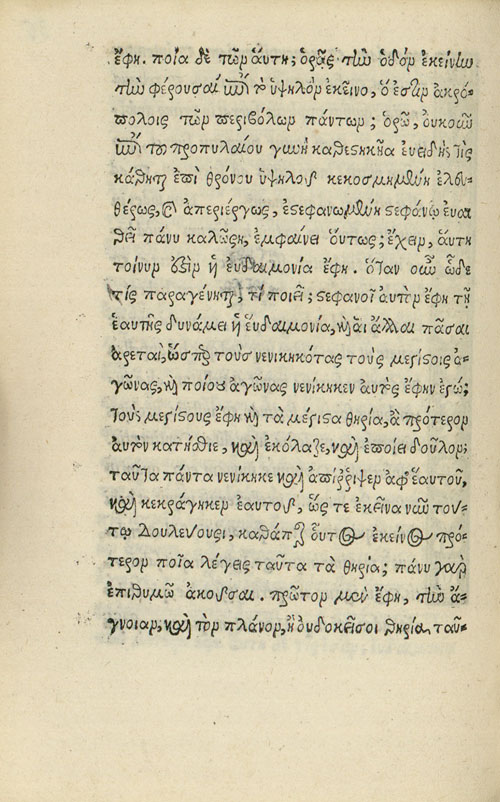 ἔφη. ποῖα δὲ τῶν αὕτη; ὁρᾷς τὴν ὁδὸν ἐκείνην
τὴν φέρουσαν ἐπὶ τὸ ὑψηλὸν ἐκεῖνο, ὅ ἐστιν ἀκρό-
πολοις τῶν περιβόλων πάντων; ὁρῶ, οὐκοῦν
ἐπὶ τοῦ προπυλαίου γυνὴ καθεστηκῆα ἐνειδής τις
κάθηται ἐπὶ θρόνου ὑψηλοῦ κεκοσμημένη ἐλευ-
θέρως, καὶ ἀπεριέργως, ἐστεφανωμένη στεφάνῳ εὐαν
θεῖ πάνυ καλῶς, ἐμφαίνει οὕτως; ἔχειν, αὕτη
τοίνυν ἐστὶν ἡ εὐδαιμονία ἔφη. ὅταν οὖν ὧδε
τίς παραγένηται, τί ποιεῖ; στεφανοῖ αὐτὸν ἔφη τῇ
ἑαυτῆς δυνάμει ἡ εὐδαιμονία, καὶ αἱ ἄλλαι πᾶσαι
ἀρεταὶ, ὥσπερ τοὺς νενικηκότας τοὺς μεγίστοις ἀ-
γῶνας, καὶ ποίους ἀγῶνας νενίκηκεν αὐτὸς ἔφην ἐγώ;
τοὺς μεγίστους ἔφη καὶ τὰ μέγιστα θηρία, ἃ πρότερον
αὐτὸν κατήσθιε, καὶ ἐκόλαζε, καὶ ἐποίει δοῦλον;
ταῦτα πάντα νενίκηκε καὶ ἀπέῤῥιψεν ἀφ' ἑαυτοῦ,
καὶ κεκράτηκεν ἑαυτοῦ, ὥς τε ἐκεῖνα νῦν τού-
τῳ δουλεύουσι, καθάπερ οὗτος ἐκείνοις πρό-
τερον ποῖα λέγεις ταῦτα τὰ θηρία; πάνυ γὰρ
ἐπιθυμῶ ἀκοῦσαι. πρῶτον μὲν ἔφη, τὴν ἄ-
γνοιαν, καὶ τὸν πλάνον, ἢ οὐ δοκεῖ σοι θηρία, ταῦ-